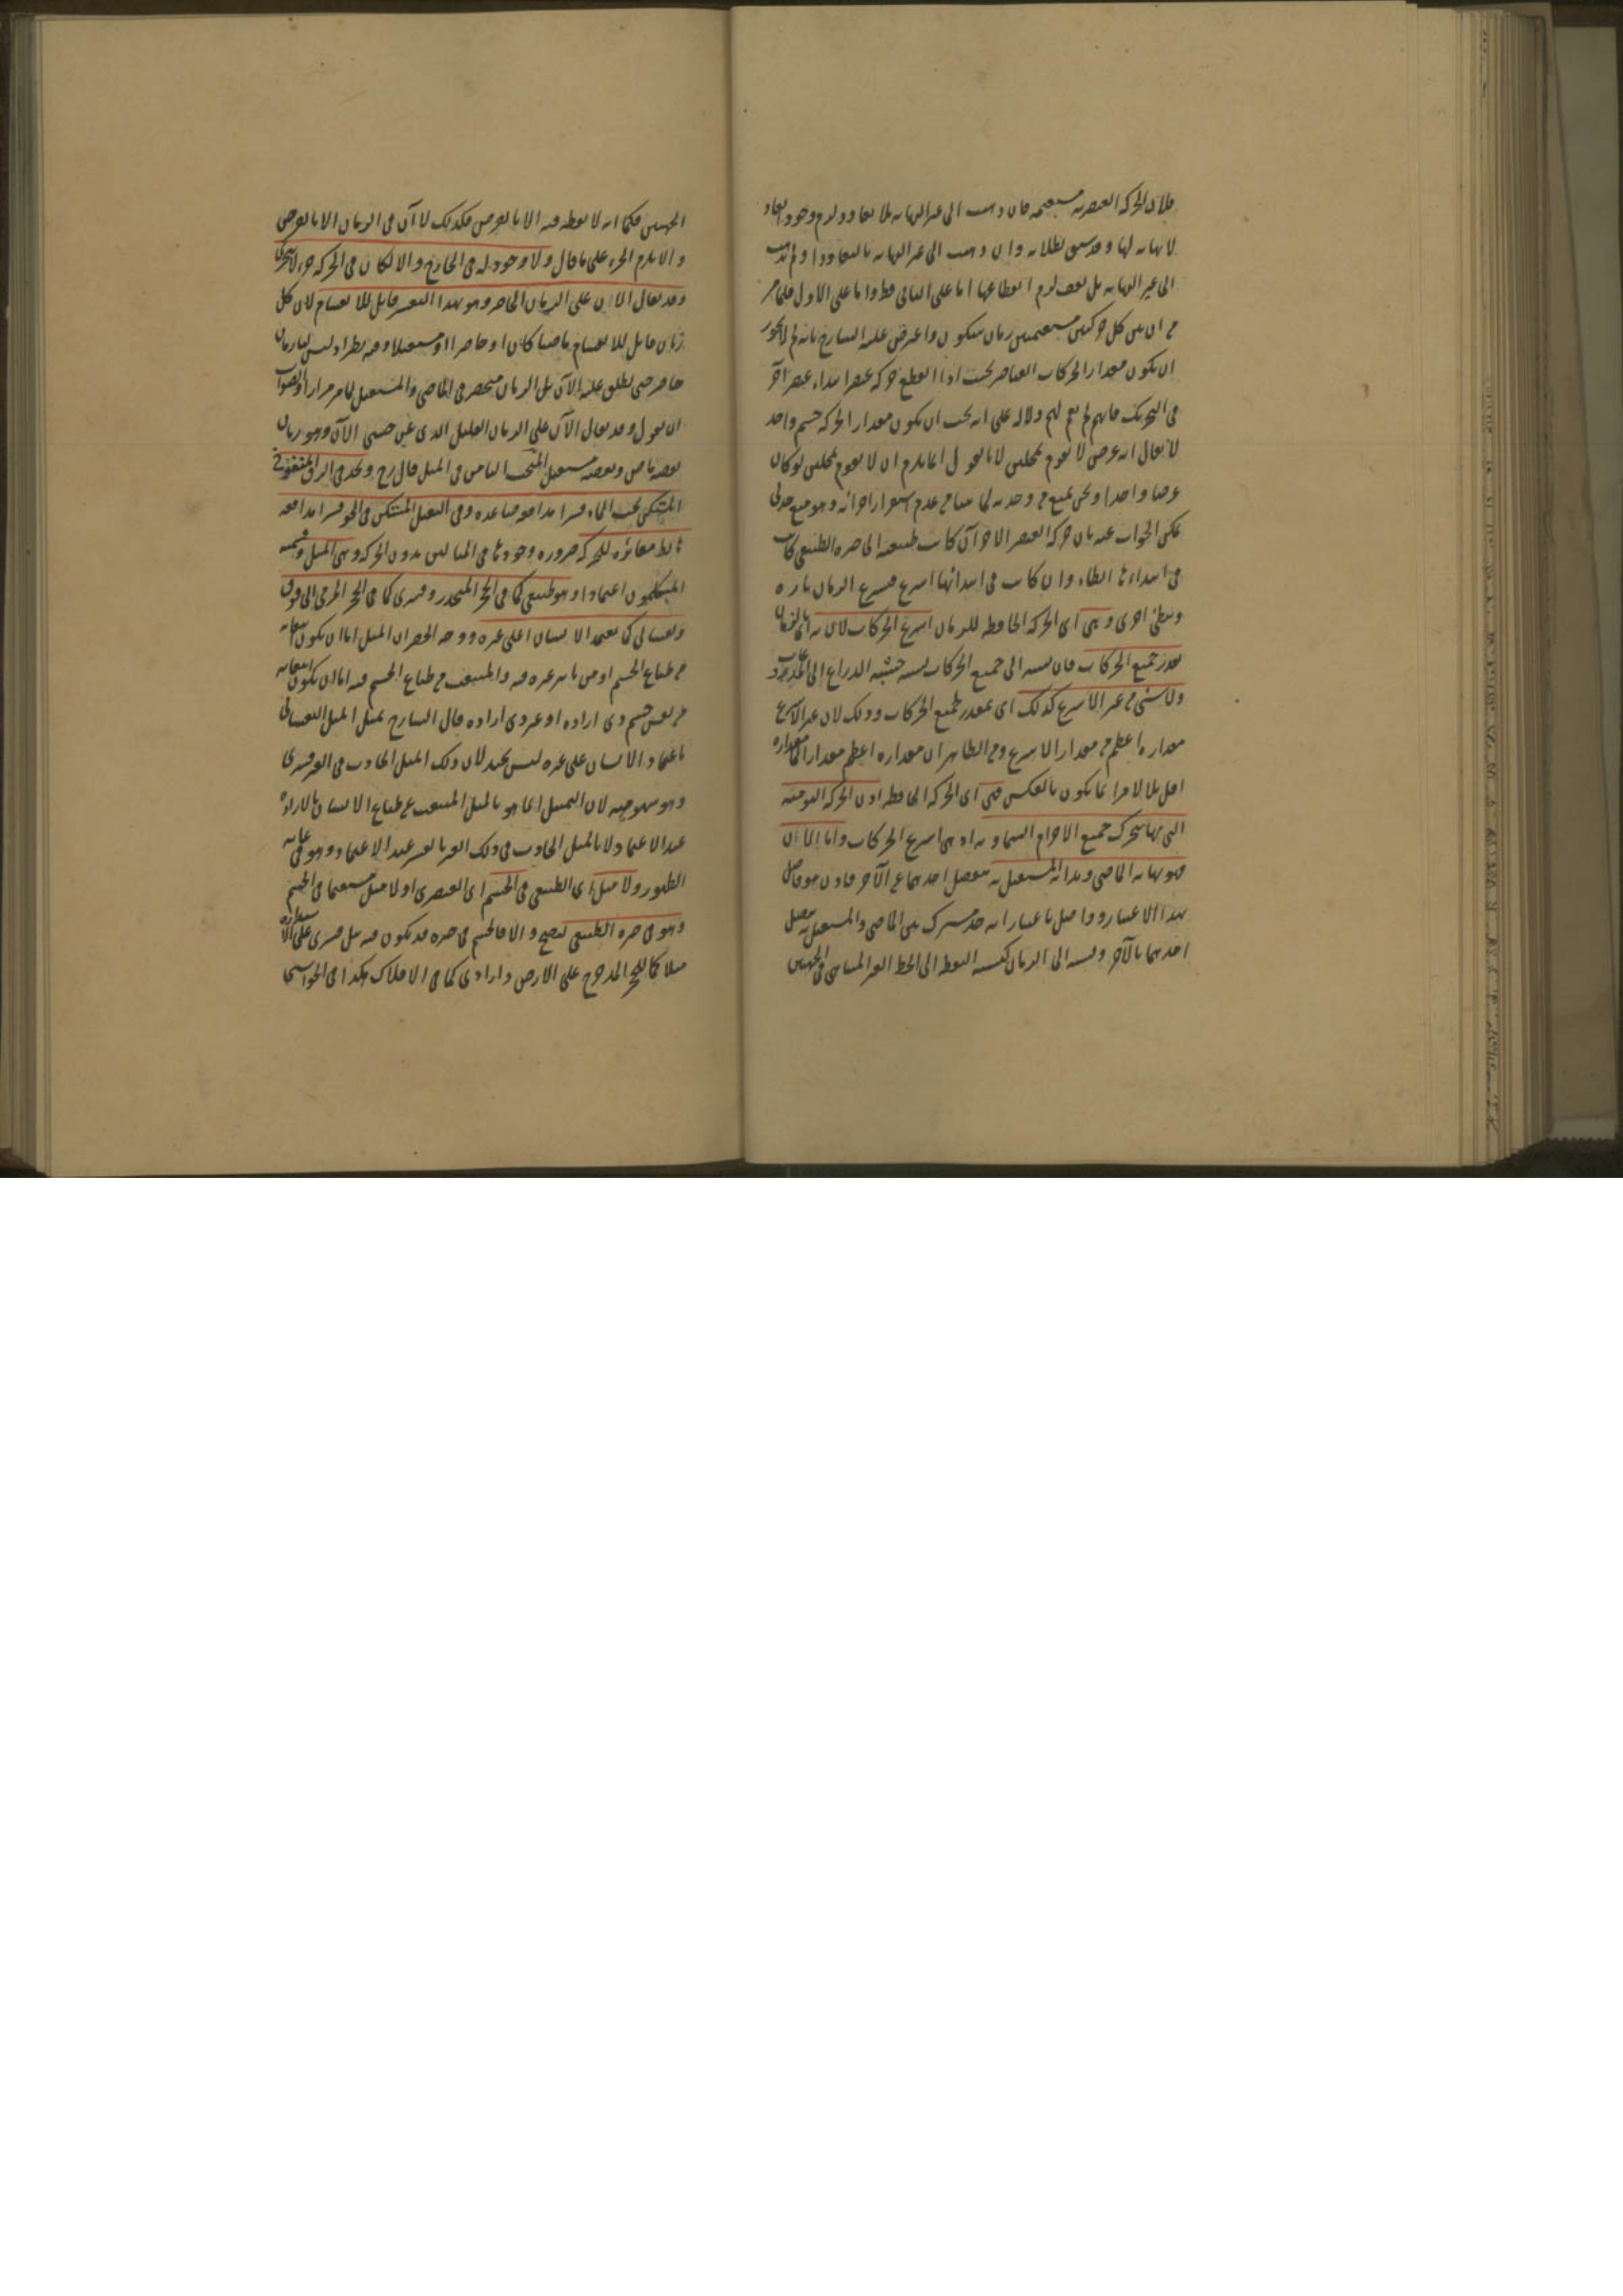 فلان الحركة العنصرية مستقيمة فان ذهبت الى غير النهاية بلا تعاود لزم وجود ابعاد
لا نهاية لها وقد سبق بطلانه وان ذهبت الى غير النهاية بالتعاود او لم تذهب
الى غير النهاية بل تقف لزم انقطاعها اما على الثاني فظ واما على الاول فلما مر
من ان بين كل حركتين مستقيمتين زمان سكون واعترض عليه الشارح بانه لم لا يجوز
ان يكون مقدارا لحركات العناصر بحيث اذا انقطع حركة عنصر ابتداء عنصر آخر
في التحريك فانهم لم يقم لهم دلالة على انه يجب ان يكون مقدارا لحركة جسم واحد
لا يقال انه عرض لا يقوم بمحلين لانا نقول انما يلزم ان لا يقوم بمحلين لو كان
عرضا واحدا ونحن نمنع من وحدته لما بينا من عدم استقرار اجزائه وهو منع جدلي
يمكن الجواب عنه بان حركة العنصر الآخر ان كانت طبيعية الى حيزه الطبيعي كانت
في ابتدائها ابطاء وان كانت في ابتدائها اسرع فيسرع الزمان تارة
ويبطئ اخرى وهي اى الحركة الحافظة للزمان اسرع الحركات لان به اى بالزمان
يقدر جميع الحركات فان نسبته الى جميع الحركات نسبة خشبة الذراع الى المذروعات
ولا شئ من غير الاسرع كذلك اى بمقدر لجميع الحركات وذلك لان غير الاسرع
مقداره اعظم من مقدار الاسرع ومن الظاهر ان مقداره اعظم مقدارا لما مقداره
اقل بلا لا مراء انما يكون بالعكس فهي اى الحركة الحافظة اذن الحركة اليومية
التي بها تتحرك جميع الاجرام السماوية اذ هي اسرع الحركات واما الآن
فهو نهاية الماضي وبداية المستقبل به ينفصل احدهما عن الآخر فاذن هو فاصل
بهذا الاعتبار وواصل باعتبار انه حد مشترك بين الماضي والمستقبل به يتصل
احدهما بالآخر ونسبته الى الزمان كنسبة النقطة الى الخط الغير المتناهي في الجهتين
الجهتين فكما انه لا نقطة فيه الا بالعرض فكذلك لا آن في الزمان الا بالعرض
والا يلزم الجزء على ما قال ولا وجود له في الخارج والا لكان في الحركة جزء لا يتجزى
وقد يقال الآن على الزمان الحاضر وهو بهذا التفسير قابل للانقسام لان كل
زمان قابل للانقسام ماضيا كان او حاضرا او مستقبلا وفيه نظر اذ ليس لنا زمان
حاضر حتى يطلق عليه الآن بل الزمان منحصر في الماضي والمستقبل كما مر مرارا والصواب
ان نقول وقد يقال الآن على الزمان القليل الذي عن جنبي الآن وهو زمان
بعضه ماض وبعضه مستقبل المبحث الثامن في الميل قال رح ونجد في الزق المنفوخ
المسكن تحت الماء قسرا مدافعة صاعدة وفي الثقيل المسكن في الجو قسرا مدافعة
هابطة مغايرة للحركة ضرورة وجودها في المثالين بدون الحركة وهي الميل ويسميه
المتكلمون اعتمادا وهو طبيعي كما في الحجر المنحدر وقسري كما في الحجر المرمي الى فوق
ونفساني كما يعتمد الانسان على غيره ووجه الحصر ان الميل اما ان يكون منبعثا
من طباع الجسم او من تأثير غيره فيه والمنبعث من طباع الجسم فيه اما ان يكون انبعاثه
من نفس جسم ذي ارادة او غير ذي ارادة قال الشارح تمثيل الميل النفساني
باعتماد الانسان على غيره ليس بجيد لان ذلك الميل الحادث في الغير قسري
وهو سهو منه لان التمثيل انما هو بالميل المنبعث عن طباع الانسان بالارادة
عند الاعتماد لا بالميل الحادث في ذلك الغير بالقسر عند الاعتماد وهو في غاية
الظهور ولا ميل اى الطبيعي في الجسم اى العنصري او لا ميل مستقيما في الجسم
وهو في حيزه الطبيعي ليصح والا فالجسم في حيزه قد يكون فيه ميل قسري على الاستدارة
مثلا كما للحجر المدحرج على الارض وارادى كما في الافلاك هكذا في الحواشي